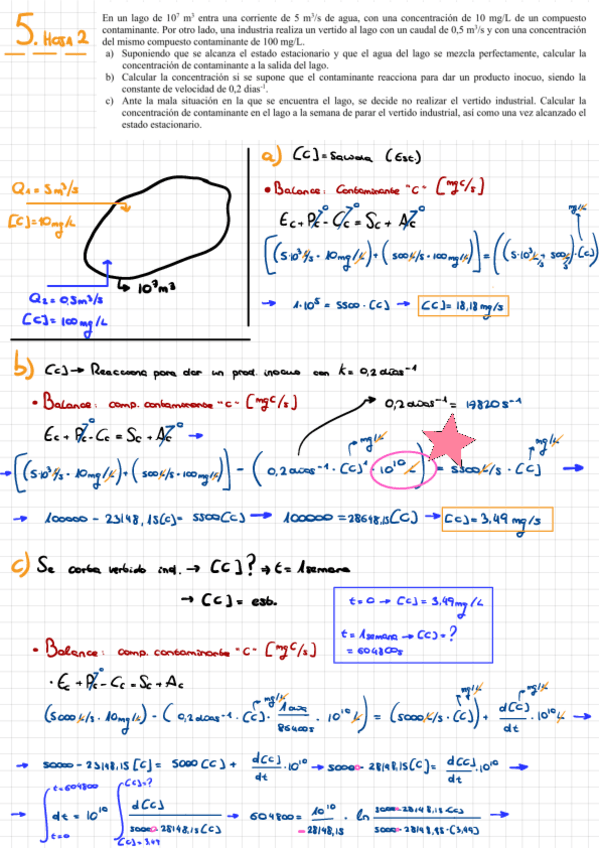 5. HOJA 2
En un lago de 10⁷ m³ entra una corriente de 5 m³/s de agua, con una concentración de 10 mg/L de un compuesto
contaminante. Por otro lado, una industria realiza un vertido al lago con un caudal de 0,5 m³/s y con una concentración
del mismo compuesto contaminante de 100 mg/L.
a) Suponiendo que se alcanza el estado estacionario y que el agua del lago se mezcla perfectamente, calcular la
concentración de contaminante a la salida del lago.
b) Calcular la concentración si se supone que el contaminante reacciona para dar un producto inocuo, siendo la
constante de velocidad de 0,2 dias⁻¹.
c) Ante la mala situación en la que se encuentra el lago, se decide no realizar el vertido industrial. Calcular la
concentración de contaminante en el lago a la semana de parar el vertido industrial, así como una vez alcanzado el
estado estacionario.
a) [C] = Salida (Est.)
Q₁ = 5m³/s
[C] = 10mg/L
10⁷m³
Q₂ = 0,5m³/s
[C] = 100mg/L
• Balance: Contaminante "C" [mgC/s]
Ec + Pc⁰ - Cc⁰ = Sc + Ac⁰
mg/L
[(5·10³ L/s · 10mg/L) + (500 L/s · 100mg/L)] = ((5·10³ L/s + 500 L/s)·[C])
→ 1·10⁵ = 5500·[C] → [C] = 18,18 mg/s
b) [C] → Reacciona para dar un prod. inocuo con k = 0,2 días⁻¹
• Balance: comp. contaminante "C" [mgC/s]
0,2 días⁻¹ = 19820 s⁻¹
Ec + Pc⁰ - Cc = Sc + Ac⁰ →
mg/L
mg/L
→ [(5·10³ L/s · 10mg/L) + (500 L/s · 100mg/L)] - (0,2 días⁻¹ · [C]¹ · 10¹⁰ L) = 5500 L/s · [C] →
→ 100000 - 23148,15[C] = 5500[C] → 100000 = 28648,15[C] → [C] = 3,49 mg/s
c) Se corta vertido ind. → [C]? ⇒ t = 1 semana
→ [C] = est.
t = 0 → [C] = 3,49mg/L
t = 1 semana → [C] = ?
= 604800s
• Balance: comp. contaminante "C" [mgC/s]
· Ec + Pc⁰ - Cc = Sc + Ac
mg/L
mg/L
mg/L
(5000 L/s · 10mg/L) - (0,2 días⁻¹ · [C] · 1 día/86400s · 10¹⁰ L) = (5000 L/s · [C]) + d[C]/dt · 10¹⁰ L →
→ 50000 - 23148,15[C] = 5000[C] + d[C]/dt · 10¹⁰ → 50000 - 28148,15[C] = d[C]/dt · 10¹⁰ →
→ ∫ t=0 t=604800 dt = 10¹⁰ ∫ [C]=3,49 [C]=? d[C]/50000-28148,15[C] → 604800 = 10¹⁰/-28148,15 · ln 50000-28148,15[C]/50000-28148,15·(3,49) →